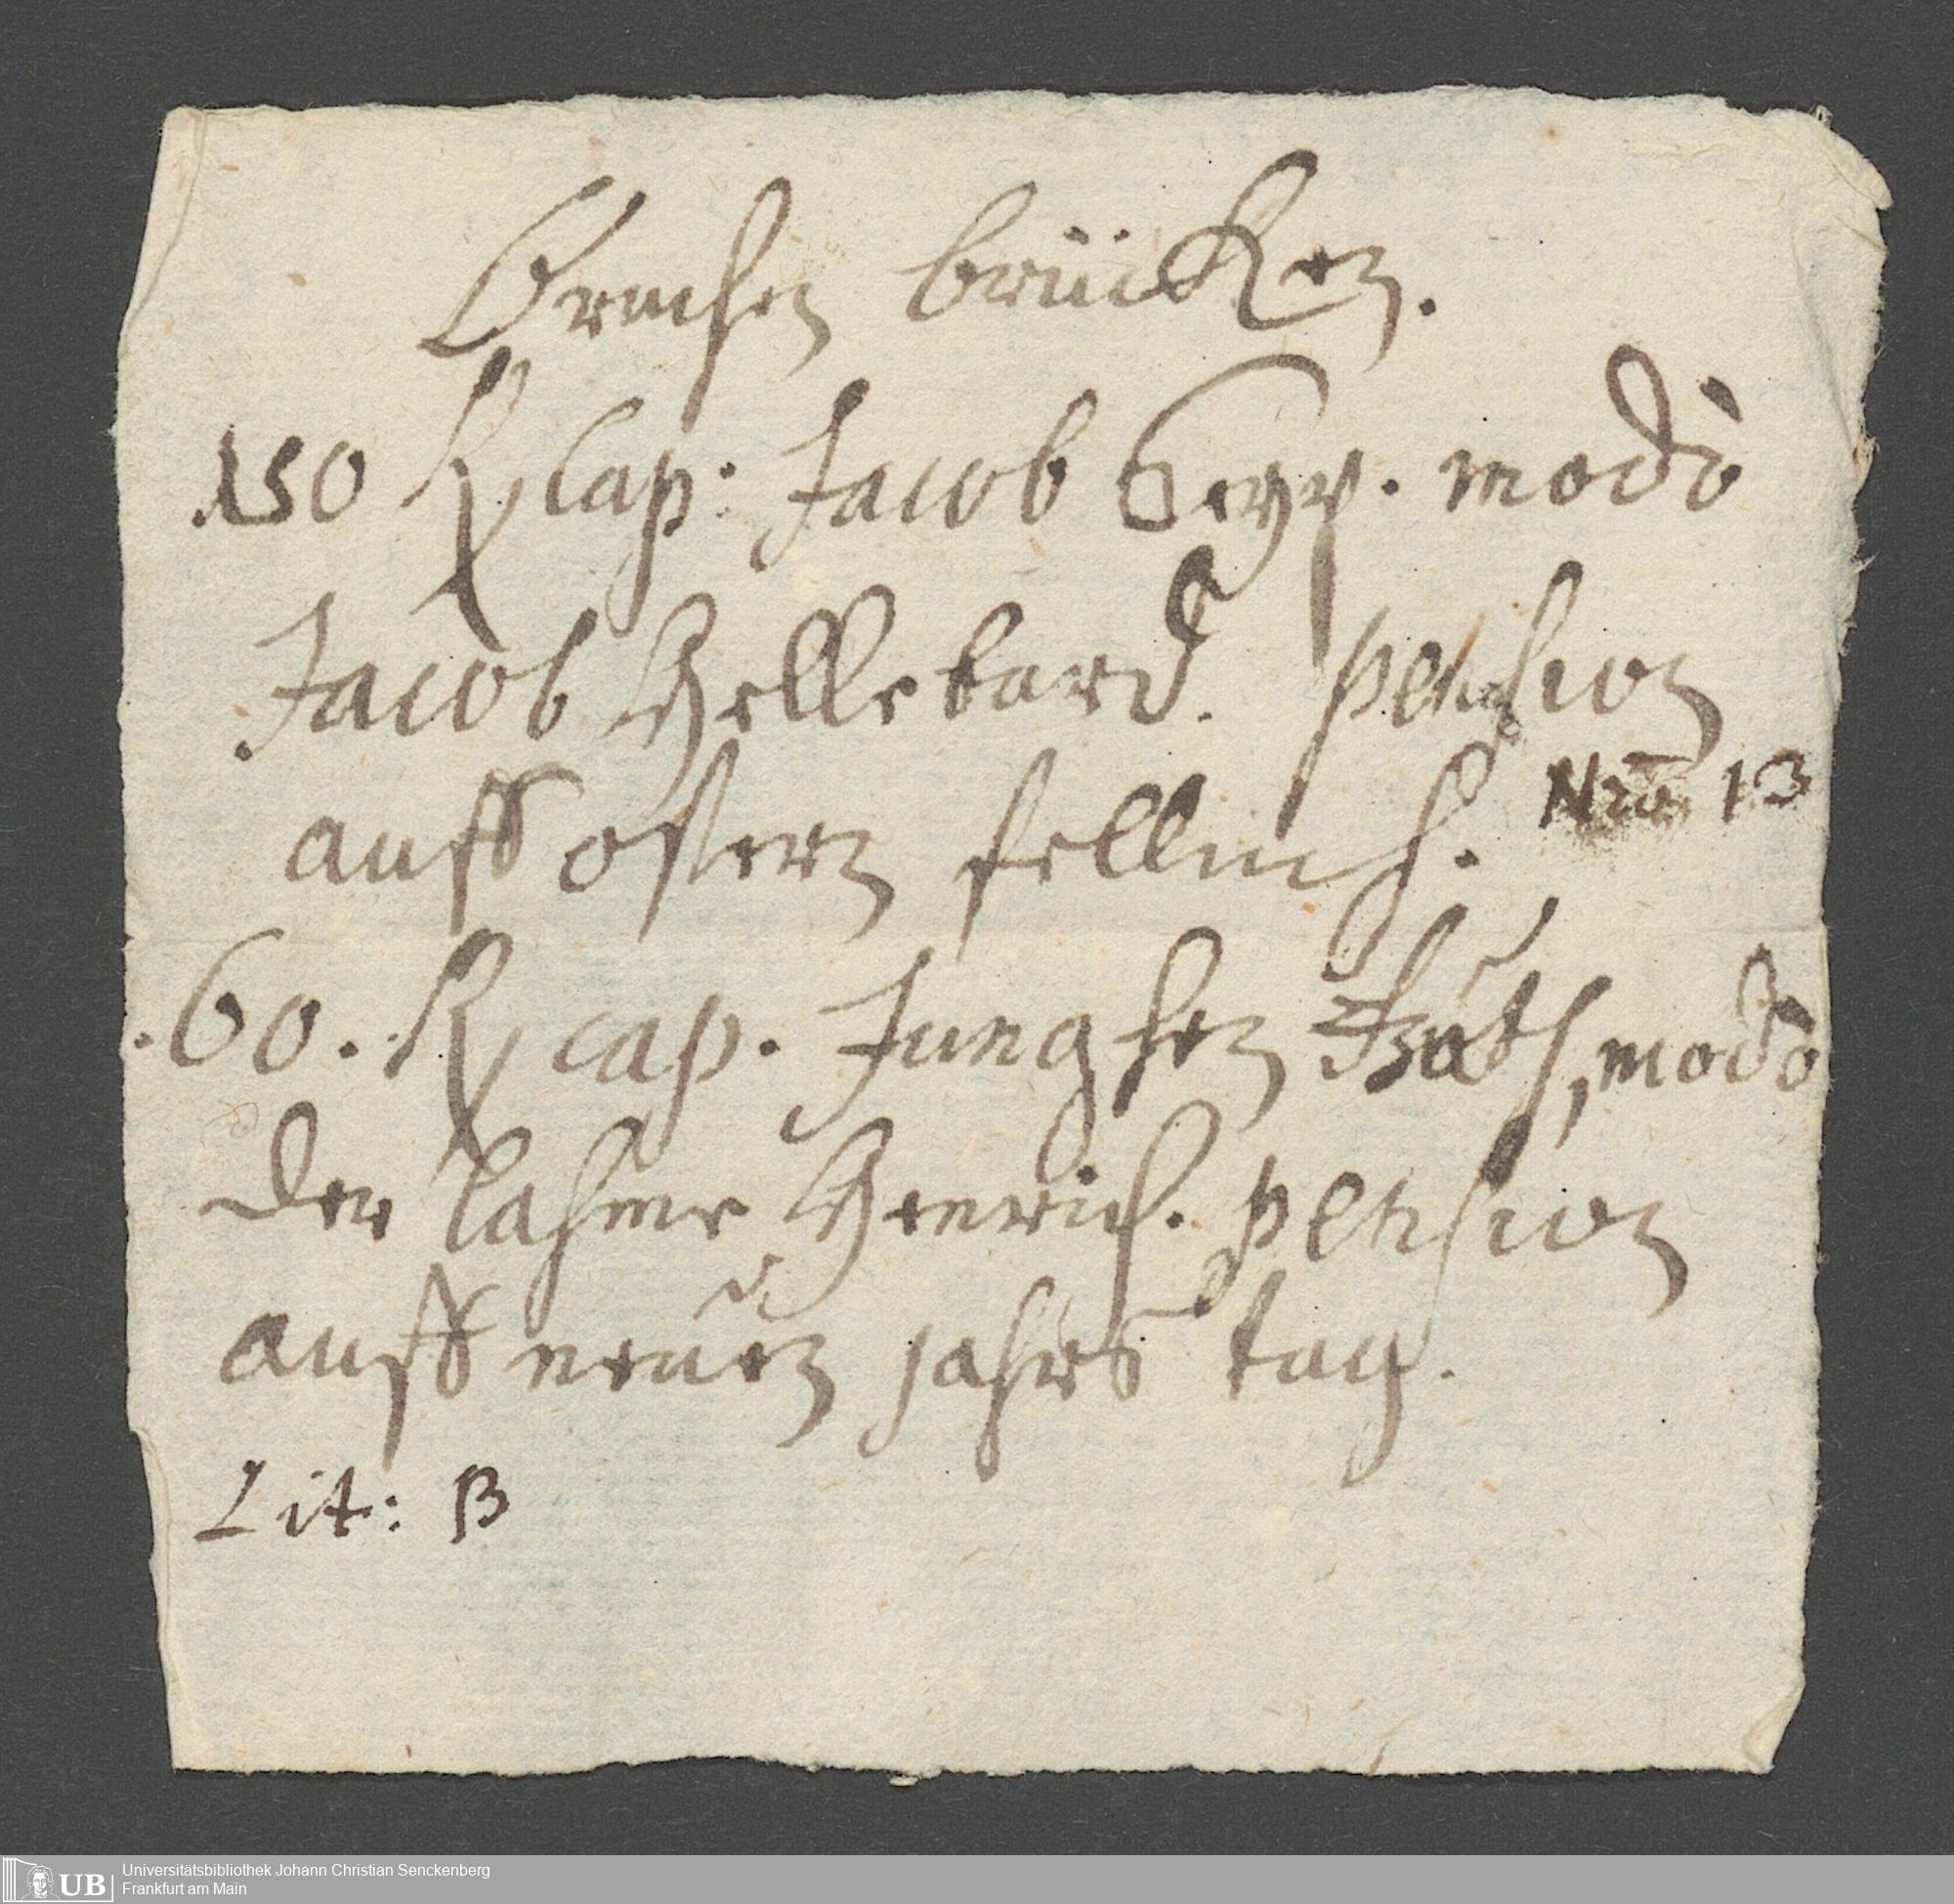 Brucken brücken.
150 R cap: Jacob Seyp. modò
Jacob Hellebard. pension
auff ostern fellich.
Nro 13
60. R cap. Junghen modò
der lahme Henrich. pension
auff neuen jahrs tag.
Lit: B
Universitätsbibliothek Johann Christian Senckenberg
Frankfurt am Main
UB